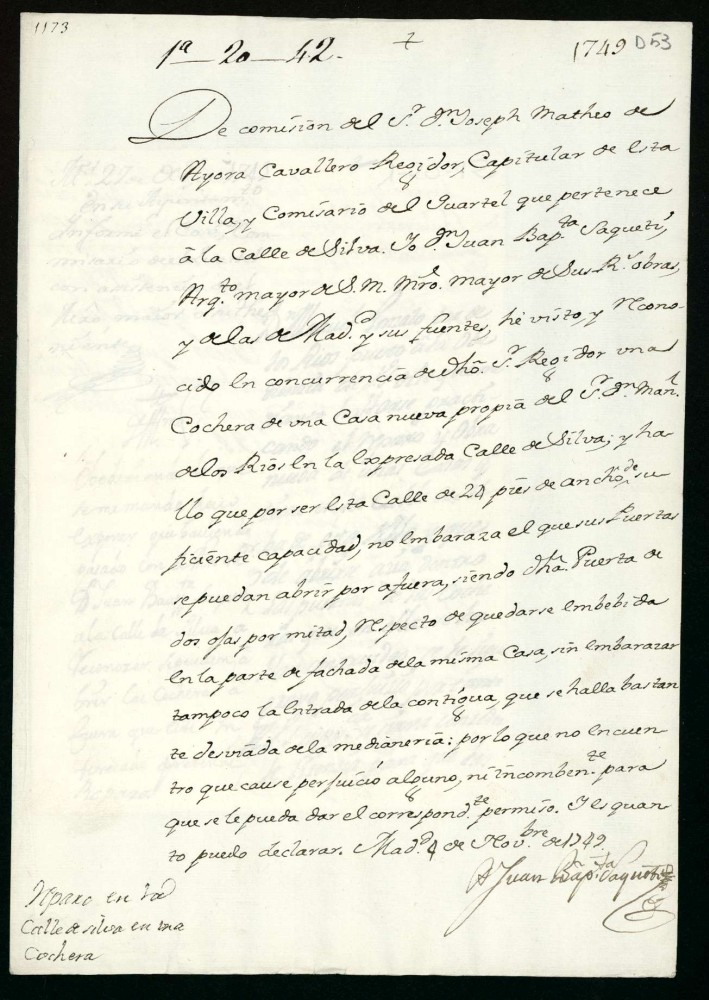 1173
1ª 20 - 42.
1749 D53
De comision del S.r D.n Joseph Matheo de
Ayora Cavallero Regidor, Capitular de esta
Villa, y Comisario del Quartel que pertenece
â la Calle de Silva. Yo D.n Juan Bap.ta Saqueti,
Arq.to mayor de S. M. Mro. mayor de Sus R.s obras,
y de las de Mad.d y sus fuentes, hé visto, y recono-
cido en concurrencia de dho. S.r Regidor una
Cochera de una Casa nueva propia del S.r D.n Man.l
de los Rios en la expresada Calle de Silva; y ha
llo que por ser esta Calle de 24 pies de ancho, de su
ficiente capacidad, no embaraza el que sus Puertas
se puedan abrir por afuera, siendo dha. Puerta de
dos ojas por mitad, respecto de quedarse embebida
en la parte de fachada de la misma Casa, sin embarazar
tampoco la entrada de la contigua, que se halla bastan
te desviada de la medianeria: por lo que no encuen
tro que cause perjuicio alguno, ni incomben.te para
que se le pueda dar el correspond.te permiso. Y es quan
to puedo declarar. Mad.d 4 de Nov.bre de 1749.
D.n Juan Bap.ta Saqueti
Calle de silva en una
Cochera